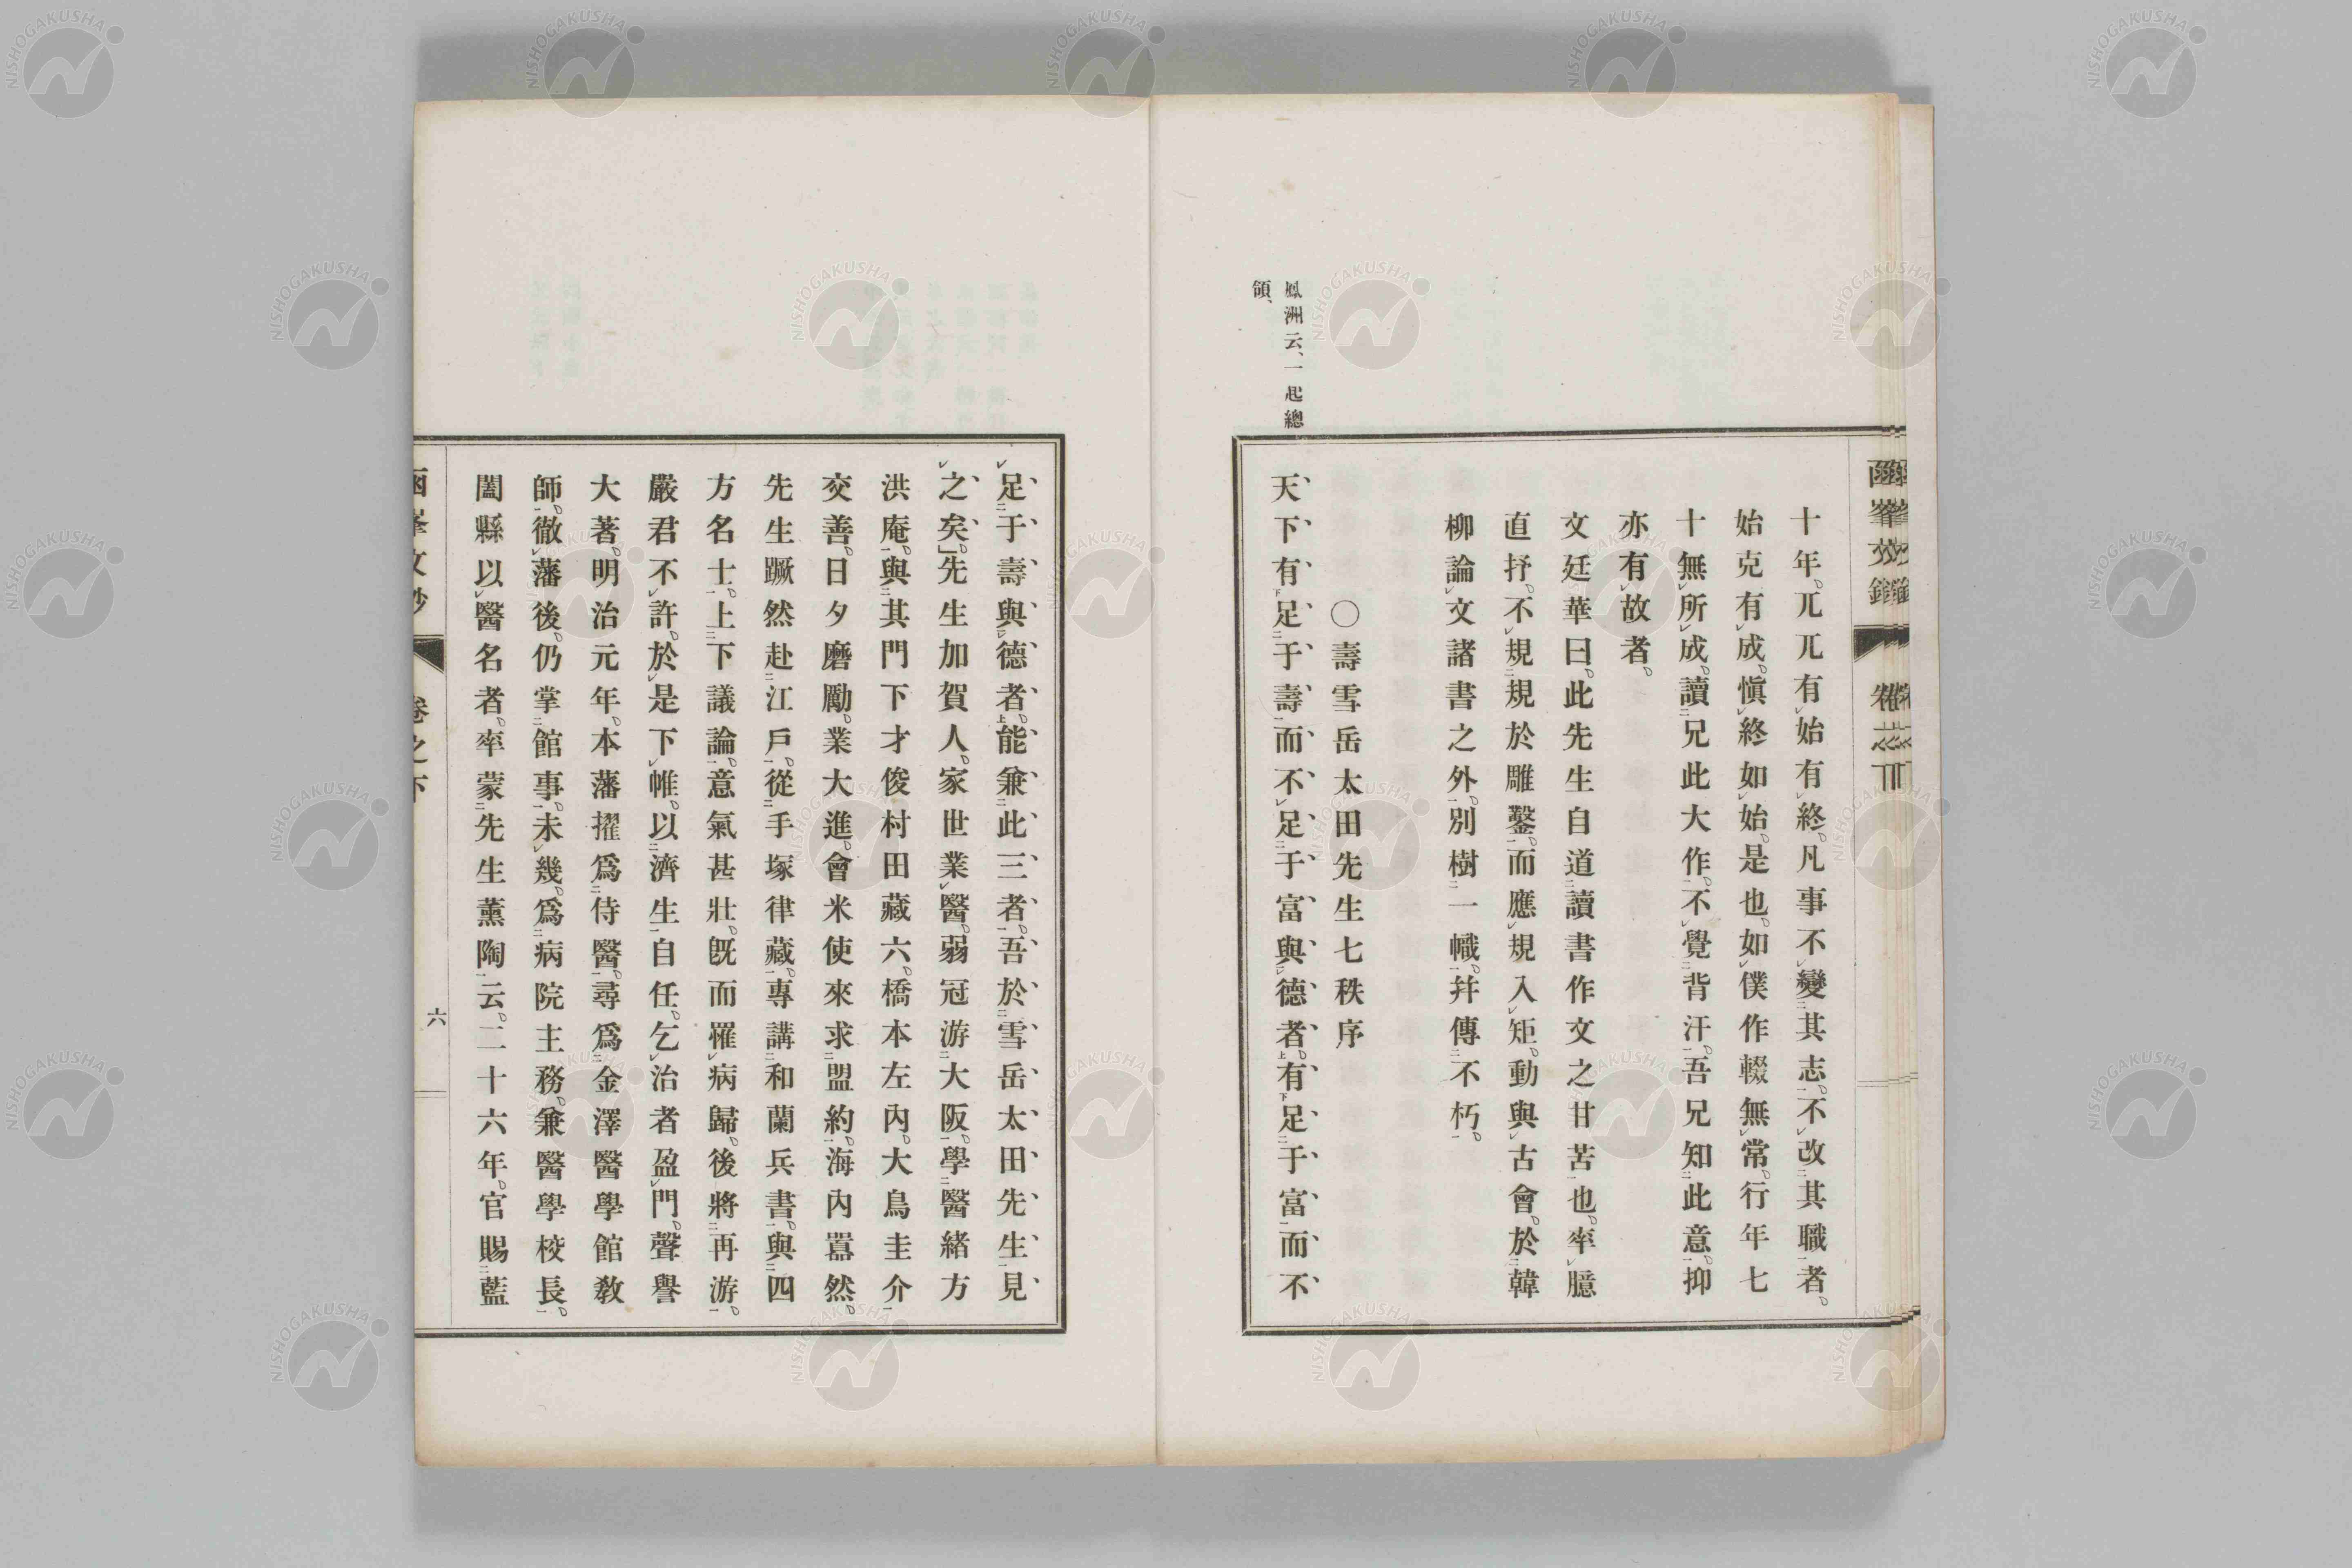 十年。兀兀有始有終。凡事不變其志。不改其職者。
始克有成。愼終如始。是也。如僕作輟無常。行年七
十無所成。讀兄此大作。不覺背汗。吾兄知此意。抑
亦有故者。
文廷華曰。此先生自道讀書作文之甘苦也。率臆
直抒。不規規於雕鑿。而應規入矩。動與古會。於韓
柳論文諸書之外。別樹一幟。幷傳不朽。
〇壽雪岳太田先生七秩序
鳳洲云、一起總
領、
天下有足于壽而不足于富與德者。有足于富而不
足于壽與德者。能兼此三者。吾於雪岳太田先生見
之矣。」先生加賀人。家世業醫。弱冠游大阪。學醫緒方
洪庵。與其門下才俊村田藏六。橋本左內。大鳥圭介
交善。日夕磨勵。業大進。會米使來求盟約。海內囂然。
先生蹶然赴江戶。從手塚律藏。專講和蘭兵書。與四
方名士。上下議論。意氣甚壯。旣而罹病歸。後將再游。
嚴君不許。於是下帷。以濟生自任。乞治者盈門。聲譽
大著。明治元年。本藩擢爲侍醫。尋爲金澤醫學館敎
師。徹藩後。仍掌館事。未幾。爲病院主務。兼醫學校長。
闔縣以醫名者。率蒙先生薰陶云。二十六年。官賜藍
卷之下
六
NISHOGAKUSHA